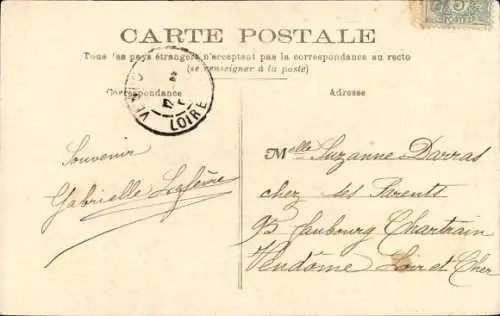 CARTE POSTALE
Tous les pays étrangers n'acceptent pas la correspondance au recto
(se renseigner à la poste)
Correspondance
Adresse
LOIRE
5
Souvenir
Gabrielle Lefèvre
Melle Suzanne Darras
chez ses Parents
95 faubourg Chartrain
Vendôme Loir et Cher